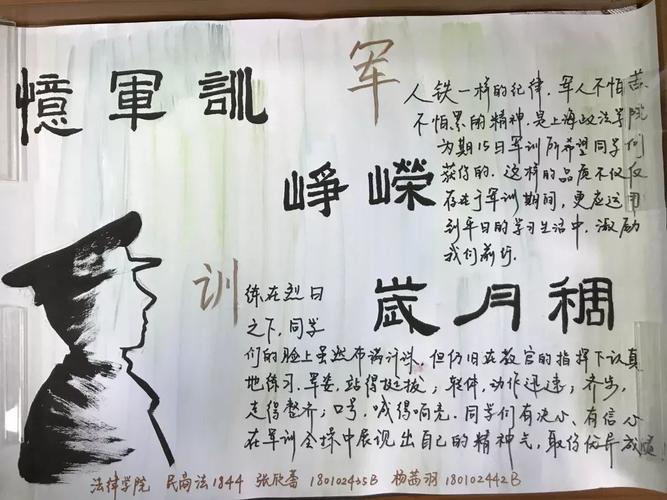 憶軍訓
崢嶸
歲月稠
军
人铁一样的纪律,军人不怕苦
不怕累的精神,是上海政法学院
为期15日军训所希望同学们
获得的。这样的品质不仅仅
存在于军训期间,更应运用
到平日的学习生活中,激励
我们前行.
训
练在烈日
之下,同学
们的脸上虽然布满汗珠,但仍旧在教官的指挥下认真
地练习.军姿,站得挺拔;转体,动作迅速;齐步,
走得整齐;口号,喊得响亮.同学们有决心、有信心
在军训会操中展现出自己的精神气,取得优异成绩
法律学院 民商法1844 张欣蕾 180102435B 杨茜羽 180102442B